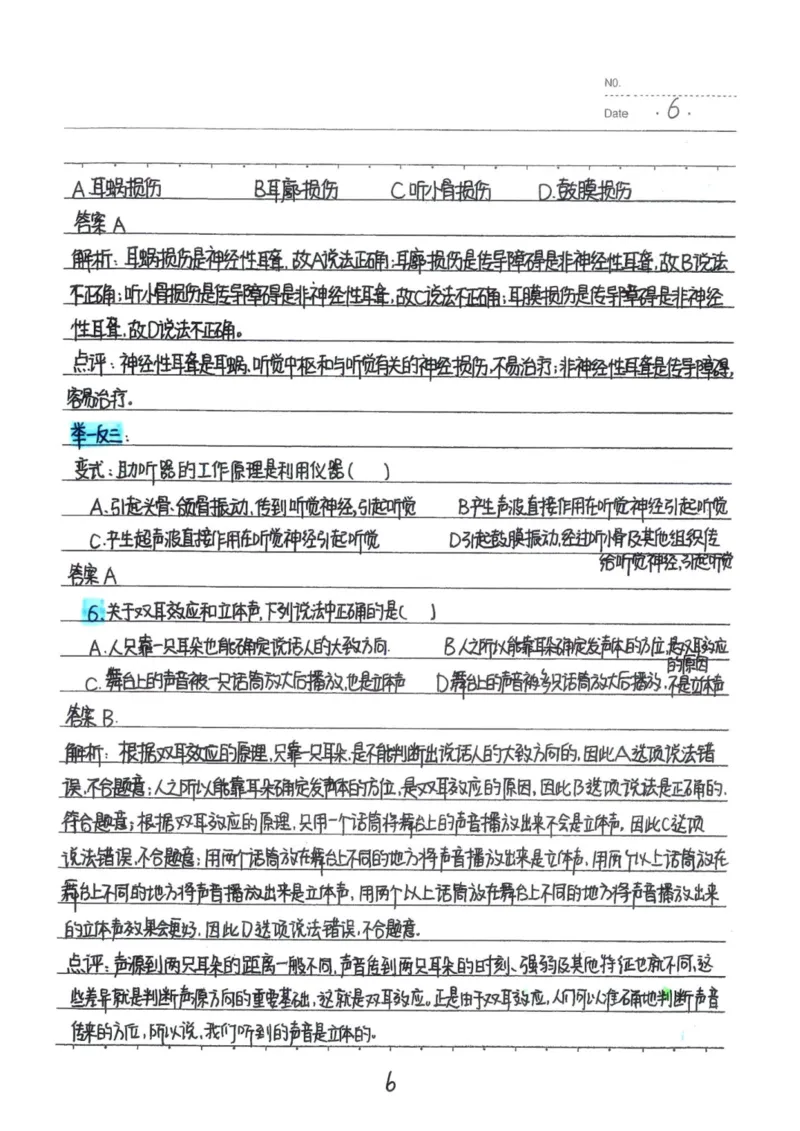 NO.
Date ·6·
A.耳蜗损伤 B耳廓损伤 C听小骨损伤 D.鼓膜损伤
答案A
解析：耳蜗损伤是神经性耳聋，故A说法正确；耳廓损伤是传导障碍是非神经性耳聋，故B说法
不正确；听小骨损伤是传导障碍是非神经性耳聋，故C说法不正确；耳膜损伤是传导障碍是非神经
性耳聋，故D说法不正确。
点评：神经性耳聋是耳蜗、听觉中枢和与听觉有关的神经损伤，不易治疗；非神经性耳聋是传导障碍，
容易治疗。
举一反三：
变式：助听器的工作原理是利用仪器（ ）
A.引起头骨、颌骨振动，传到听觉神经，引起听觉 B产生声波直接作用在听觉神经引起听觉
C.产生超声波直接作用在听觉神经引起听觉 D引起鼓膜振动，经过听小骨及其他组织传
给听觉神经，引起听觉
答案A
6.关于双耳效应和立体声，下列说法中正确的是（ ）
A.人只靠一只耳朵也能确定说话人的大致方向. B人之所以能靠耳朵确定发声体的方位，是双耳效应
的原因
C.舞台上的声音被一只话筒放大后播放，也是立体声 D舞台上的声音被多只话筒放大后播放，不是立体声
答案B.
解析：根据双耳效应的原理，只靠一只耳朵，是不能判断出说话人的大致方向的，因此A选项说法错
误，不合题意；人之所以能靠耳朵确定发声体的方位，是双耳效应的原因，因此B选项说法是正确的，
符合题意；根据双耳效应的原理，只用一个话筒将舞台上的声音播放出来不会是立体声，因此C选项
说法错误，不合题意；用两个话筒放在舞台上不同的地方将声音播放出来是立体声，用两个以上话筒放在
舞台上不同的地方将声音播放出来是立体声，用两个以上话筒放在舞台上不同的地方将声音播放出来
的立体声效果会更好，因此D选项说法错误，不合题意。
点评：声源到两只耳朵的距离一般不同，声音传到两只耳朵的时刻、强弱及其他特征也就不同，这
些差异就是判断声源方向的重要基础，这就是双耳效应。正是由于双耳效应，人们可以准确地判断声音
传来的方位，所以说，我们听到的声音是立体的。
6